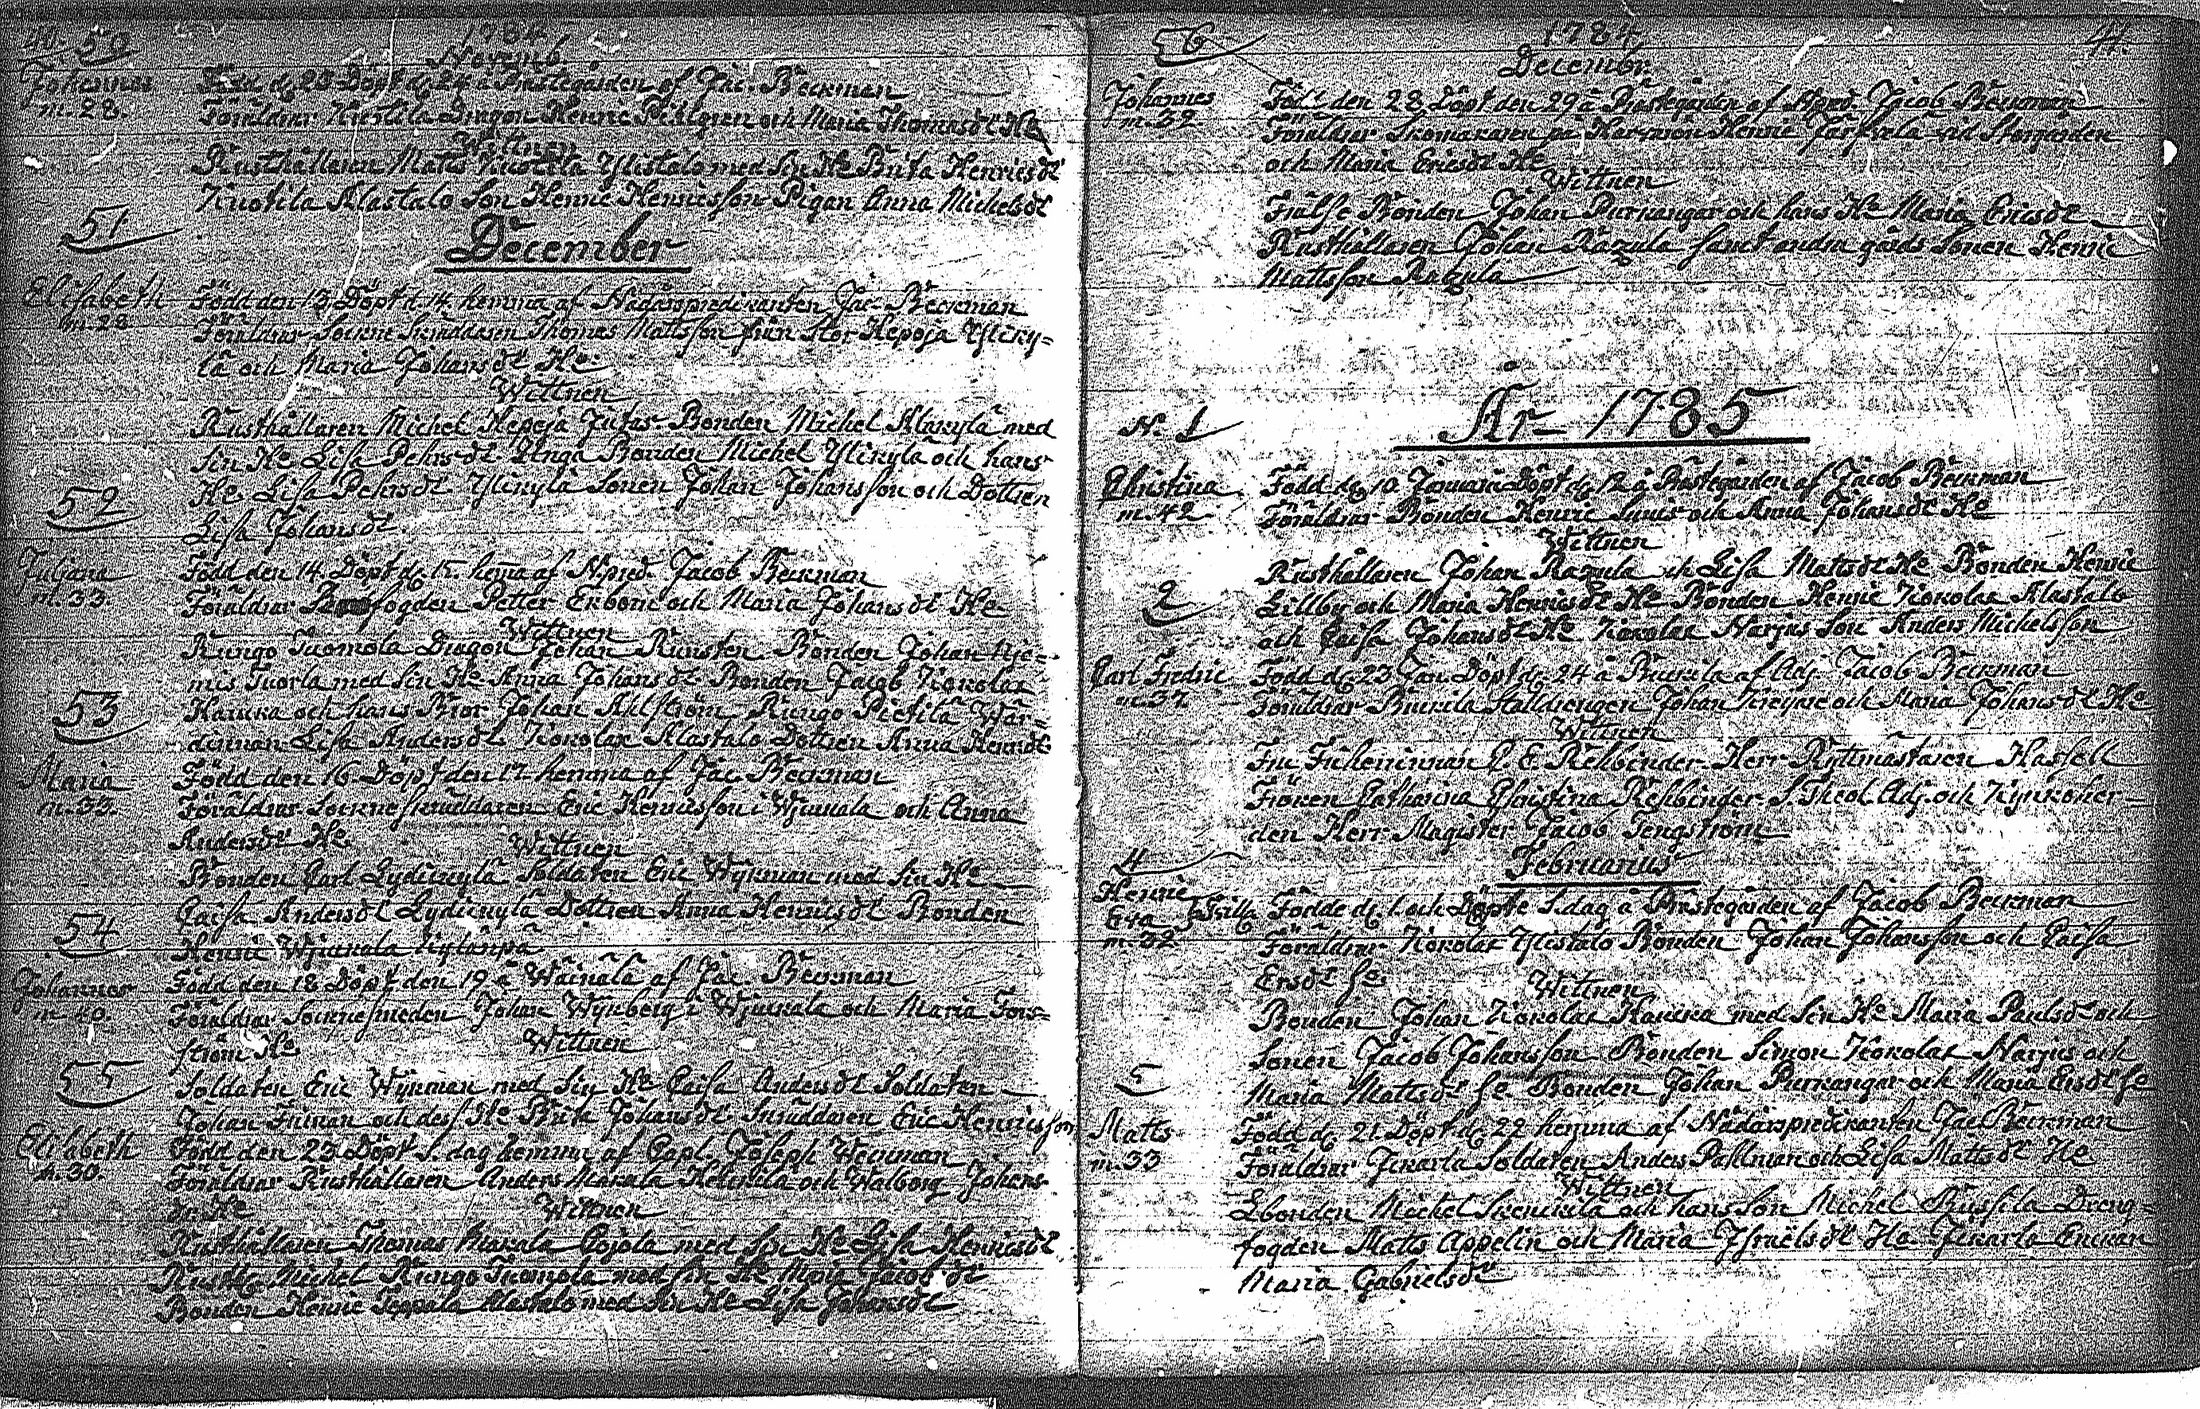 40. 50
1784
Novemb.
Johannes
m. 28.
Född d. 23 Döpt d. 24 å Prästegården af Jac. Beckman
Föräldrar Kustila Dragon Henric Pihlgren och Maria Thomasdr He
Wittnen
Rusthållaren Matts Kustila Ylistalo med sin He Brita Henricsdr
Kustila Alastalo Son Henric Henricsson Pigan Anna Michelsdr
51
December
Elisabeth
m. 28
Född den 13. Döpt d. 14. hemma af Nådårspredikanten Jac. Beckman
Föräldrar Sockne Skräddaren Thomas Mattsson från Stor Hepoja Yliky=
lä och Maria Johansdr He.
Wittnen
Rusthållaren Michel Hepoja Jutas Bonden Michel Alakylä med
sin He Lisa Pehrsdr Unga Bonden Michel Ylikylä och hans
He Lisa Pehrsdr Ylikylä Sonen Johan Johansson och Dottren
Lisa Johansdr
52
Juljana
m. 33.
Född den 14. Döpt d. 15. hema af Npred. Jacob Beckman
Föräldrar fogden Petter Ekbom och Maria Johansdr He
Wittnen
Rungo Tuomola Dragon Johan Runsten Bonden Johan
Tuorla med sin He Anna Johansdr Bonden Jacob Kokolax
Haukka och hans Bror Johan Ahlström Rungo Pietilä Wär=
dinnan Lisa Andersdr Kokolax Alastalo Dottren Anna Henrdr
53
Maria
m. 33.
Född den 16 Döpt den 17 hemma af Jac. Beckman
Föräldrar Sockneskräddaren Eric Henricsson i Wjukala och Anna
Andersdr He.
Wittnen
Bonden Carl Lydickylä Soldaten Eric Wykman med sin He
Caisa Andersdr Lydickylä Dottren Anna Henricsdr Bonden
Henric Wjukala
54
Johannes
m. 40.
Född den 18 Döpt den 19 å Wainala af Jac. Beckman
Föräldrar Socknesmeden Johan Wynberg i Wjukala och Maria Fors=
ström He
Wittnen
55
Soldaten Eric Wykman med sin He Caisa Andersdr Soldaten
Johan Friman och des He Brita Johansdr Skräddaren Eric Henricsson
Elisabeth
m. 30.
Född den 23. Döpt s. dag hemma af Capl. Joseph Weckman
Föräldrar Rusthållaren Anders Makala Heikkilä och Walborg Johans
dr. He
Wittnen
Rusthållaren Thomas Makala Cojola med sin He Lisa Henricsdr
Michel Rungo Tuomola med sin He Maria Jacobsdr
Bonden Henric Seppälä Alastalo med sin He Lisa Johansdr
56
1784
Decembr.
41.
Johannes
m. 32.
Född den 28 Döpt den 29 å Prästegården af Npred. Jacob Beckman
Föräldrar Skomakaren på Harvaro Henric wid Storgården
och Maria Ericsdr He
Wittnen
Frälse Bonden Johan Purkangar och hans He Maria Ericsdr
Rusthållaren Johan Razula samt andra gårds Sonen Henric
Mattsson Razula
År 1785
No. 1
Christina
m. 42.
Född d. 10 Januarii Döpt d. 12 å Prästegården af Jacob Beckman
Föräldrar Bonden Henric och Anna Johansdr He
Wittnen
Rusthållaren Johan Razula och Lisa Mattsdr He Bonden Henric
Lillby och Maria Henricsdr He Bonden Henric Kokolax Alastalo
och Caisa Johansdr He Kokolax Narjus Son Anders Michelsson
2
Carl Fredric
m. 37.
Född d. 23 Jan. Döpt d. 24 å Bruckila af Adj. Jacob Beckman
Föräldrar Bruckila Stalldrengen Johan och Maria Johansdr He
Wittnen
Fru Friherrinnan C. E. Rehbinder Herr Ryttmästaren Hastell
Fröken Catharina Christina Rehbinder S. Theol. Adj. och Kyrkoher=
den Herr Magister Jacob Tengström
Februarius
4
Henric
Eva
m. 32
Födde d. 1. och Döpte s. dag å Prästegården af Jacob Beckman
Föräldrar Kokolax Ylistalo Bonden Johan Johansson och Caisa
Ersdr He
Wittnen
Bonden Johan Kokolax Haukka med sin He Maria Paulsdr och
Sonen Jacob Johansson Bonden Simon Kokolax Narjus och
Maria Mattsdr He Bonden Johan Purkangar och Maria Ersdr He
5
Matts
m. 33
Född d. 21. Döpt d. 22 hemma af Nådårspredikanten Jac Beckman
Föräldrar Jckarla Soldaten Anders Pahlman och Lisa Mattsdr He
Wittnen
Bonden Michel och hans Son Michel Dreng=
fogden Matts Appelin och Maria Jsraelsdr He Jckarla Enkan
Maria Gabrielsdr